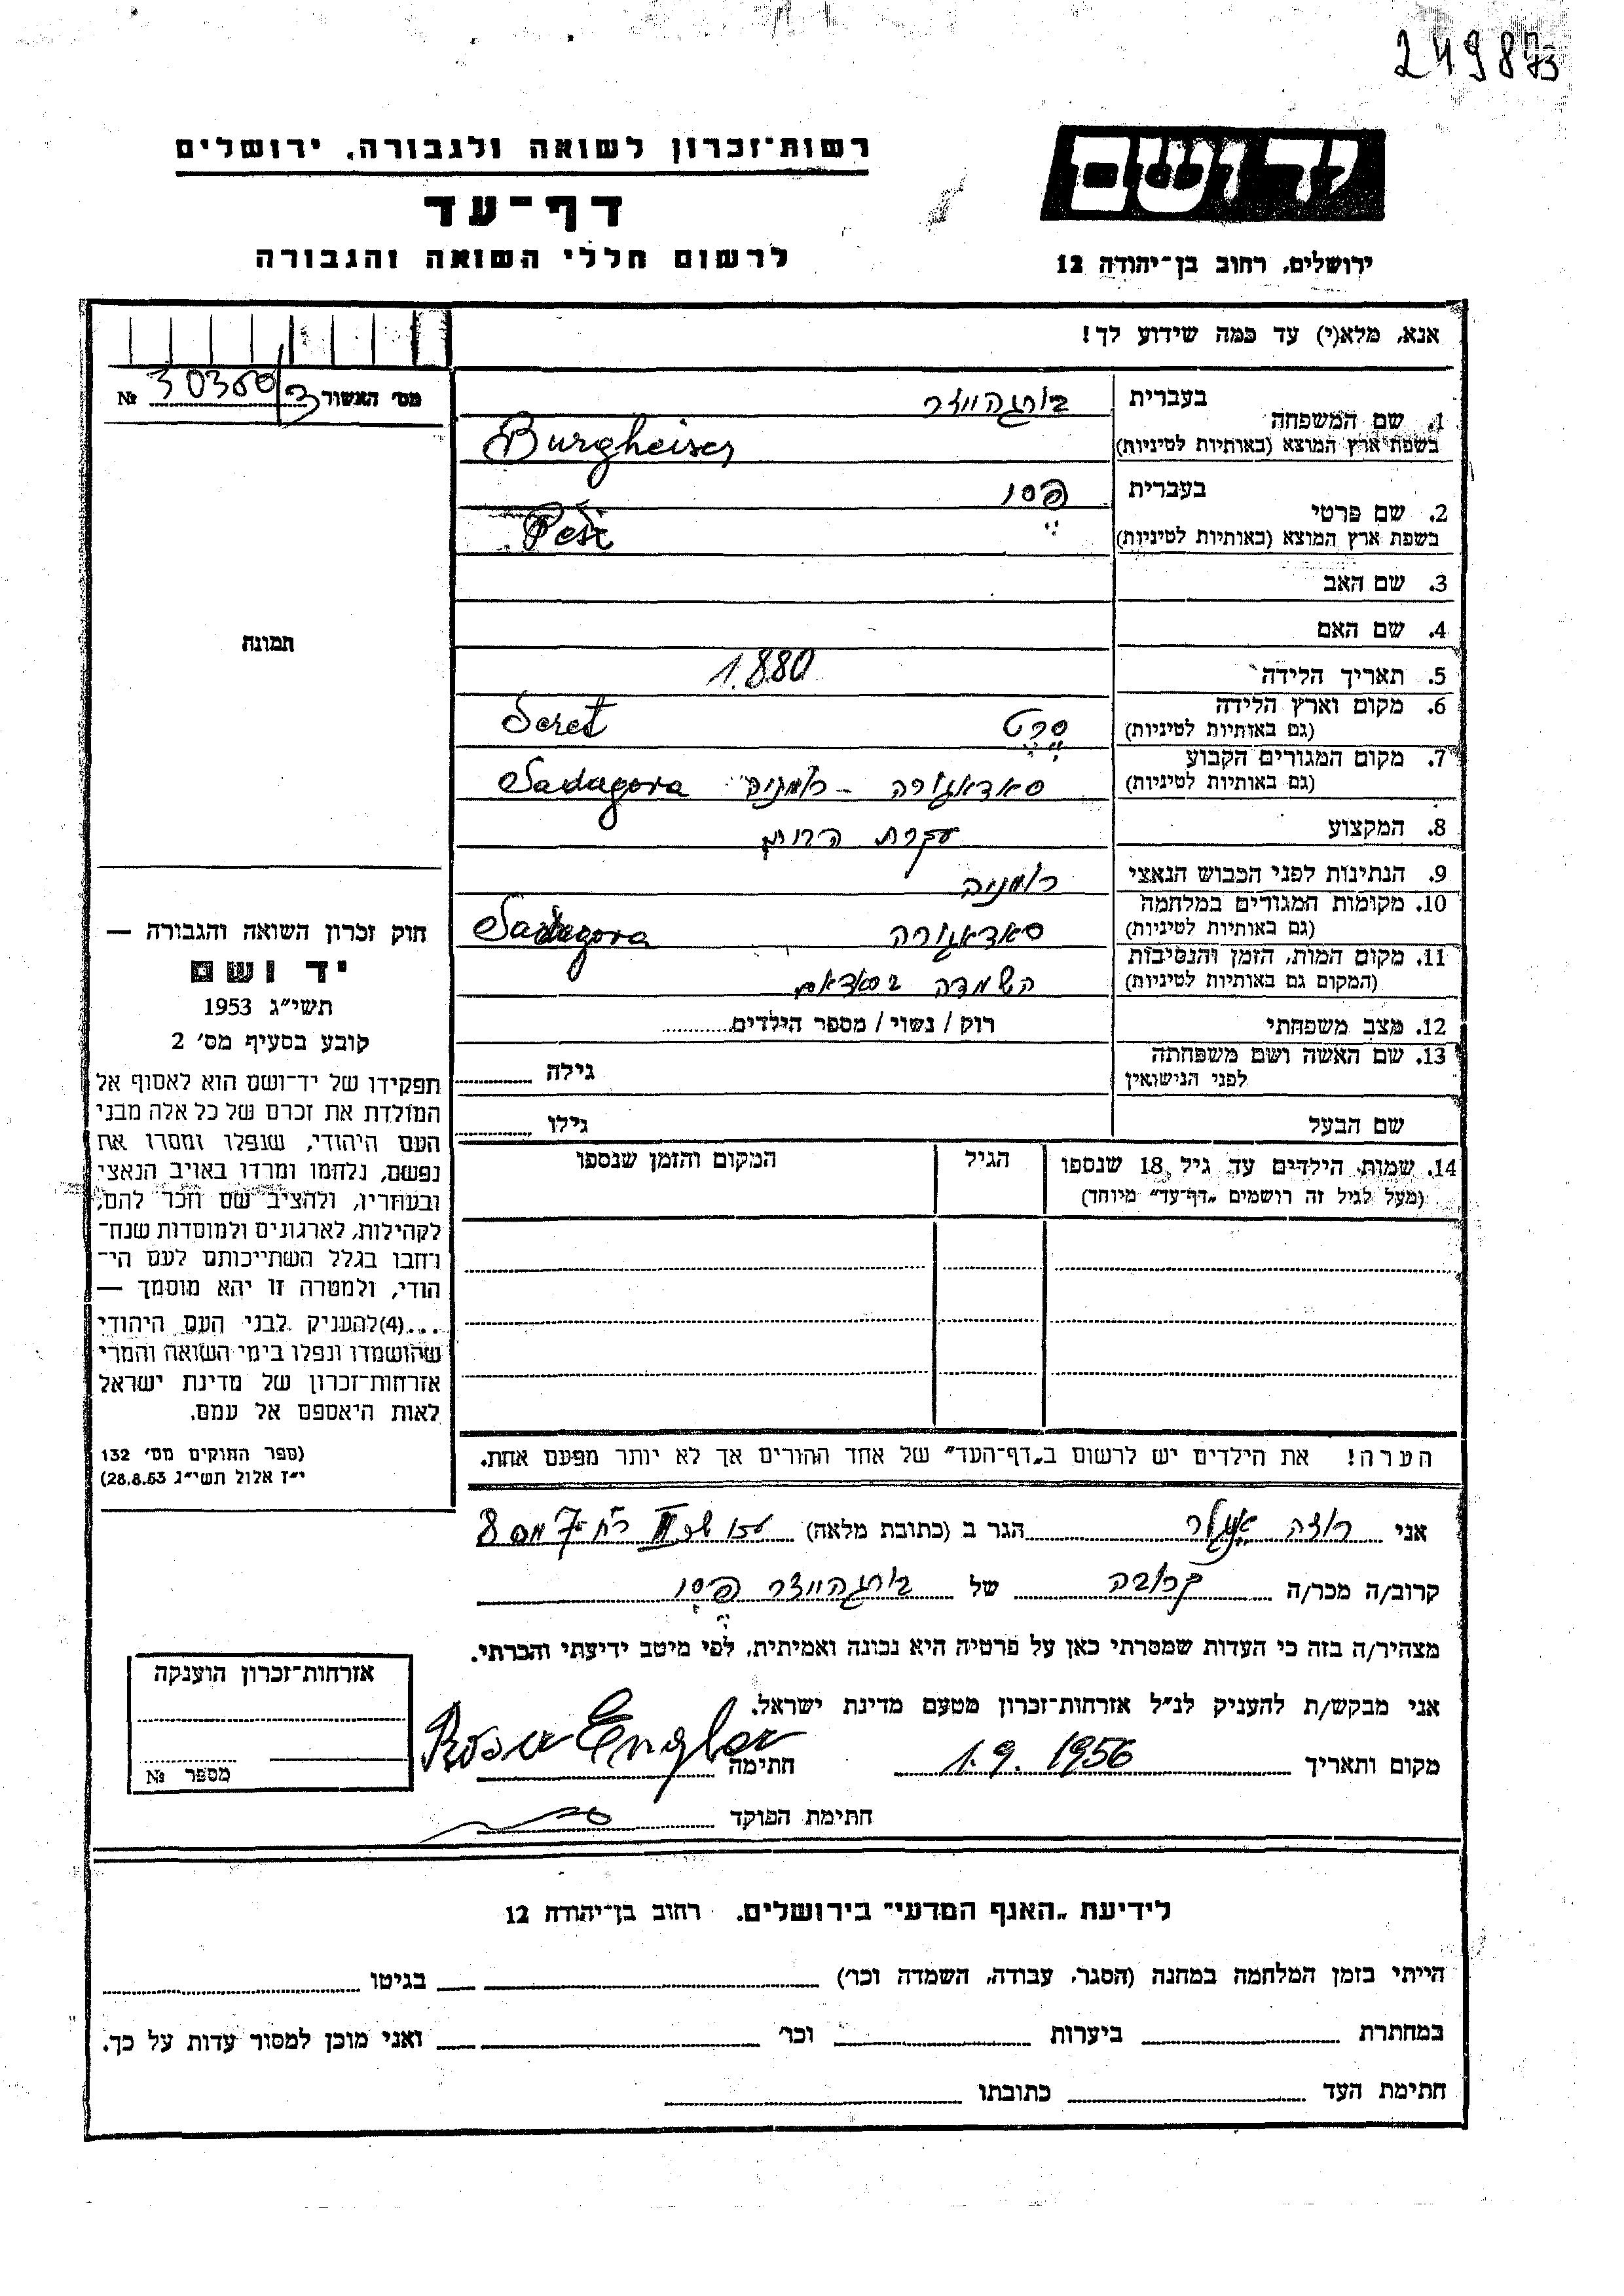 249873
רשות־זכרון לשואה ולגבורה, ירושלים
דף־עד
לרשום חללי השואה והגבורה
יד ושם
ירושלים, רחוב בן־יהודה 12
אנא, מלא(י) עד כמה שידוע לך!
מס׳ האשור 30360/3 №
1. שם המשפחה
בעברית בורגהייזר
בשפת ארץ המוצא (באותיות לטיניות) Burgheiser
2. שם פרטי
בעברית פסי
בשפת ארץ המוצא (באותיות לטיניות) Pesi
3. שם האב
4. שם האם
5. תאריך הלידה 1.880
6. מקום וארץ הלידה
(גם באותיות לטיניות) סרט Seret
7. מקום המגורים הקבוע
(גם באותיות לטיניות) סאדאגורה – רומניה Sadagora
8. המקצוע עקרת הבית
9. הנתינות לפני הכבוש הנאצי רומניה
10. מקומות המגורים במלחמה
(גם באותיות לטיניות) סאדאגורה Sadagora
11. מקום המות, הזמן והנסיבות
(המקום גם באותיות לטיניות) השמדה
12. מצב משפחתי רוק / נשוי / מספר הילדים
13. שם האשה ושם משפחתה
לפני הנישואין גילה
שם הבעל גילו
14. שמות הילדים עד גיל 18 שנספו הגיל המקום והזמן שנספו
(מעל לגיל זה רושמים „דף־עד״ מיוחד)
הערה! את הילדים יש לרשום ב„דף־העד״ של אחד ההורים אך לא יותר מפעם אחת.
תמונה
חוק זכרון השואה והגבורה —
יד ושם
תשי״ג 1953
קובע בסעיף מס׳ 2
תפקידו של יד־ושם הוא לאסוף אל
המולדת את זכרם של כל אלה מבני
העם היהודי, שנפלו ומסרו את
נפשם, נלחמו ומרדו באויב הנאצי
ובעוזריו, ולהציב שם וזכר להם,
לקהילות, לארגונים ולמוסדות שנח־
רחבו בגלל השתייכותם לעם הי־
הודי, ולמטרה זו יהא מוסמך —
...(4)להעניק לבני העם היהודי
שהושמדו ונפלו בימי השואה והמרי
אזרחות־זכרון של מדינת ישראל
לאות היאספם אל עמם.
(ספר החוקים מס׳ 132
י״ז אלול תשי״ג 28.8.53)
אני רוזה אנגלר הגר ב (כתובת מלאה) III רח 7 מס 8
קרוב/ה מכר/ה קרובה של בורגהייזר פסי
מצהיר/ה בזה כי העדות שמסרתי כאן על פרטיה היא נכונה ואמיתית, לפי מיטב ידיעתי והכרתי.
אני מבקש/ת להעניק לנ״ל אזרחות־זכרון מטעם מדינת ישראל.
מקום ותאריך 1.9.1956 חתימה Rosa Engler
חתימת הפוקד
אזרחות־זכרון הוענקה
מספר №
לידיעת „האגף המדעי״ בירושלים. רחוב בן־יהודה 12
הייתי בזמן המלחמה במחנה (הסגר, עבודה, השמדה וכו׳) בגיטו
במחתרת ביערות וכו׳ ואני מוכן למסור עדות על כך.
חתימת העד כתובתו